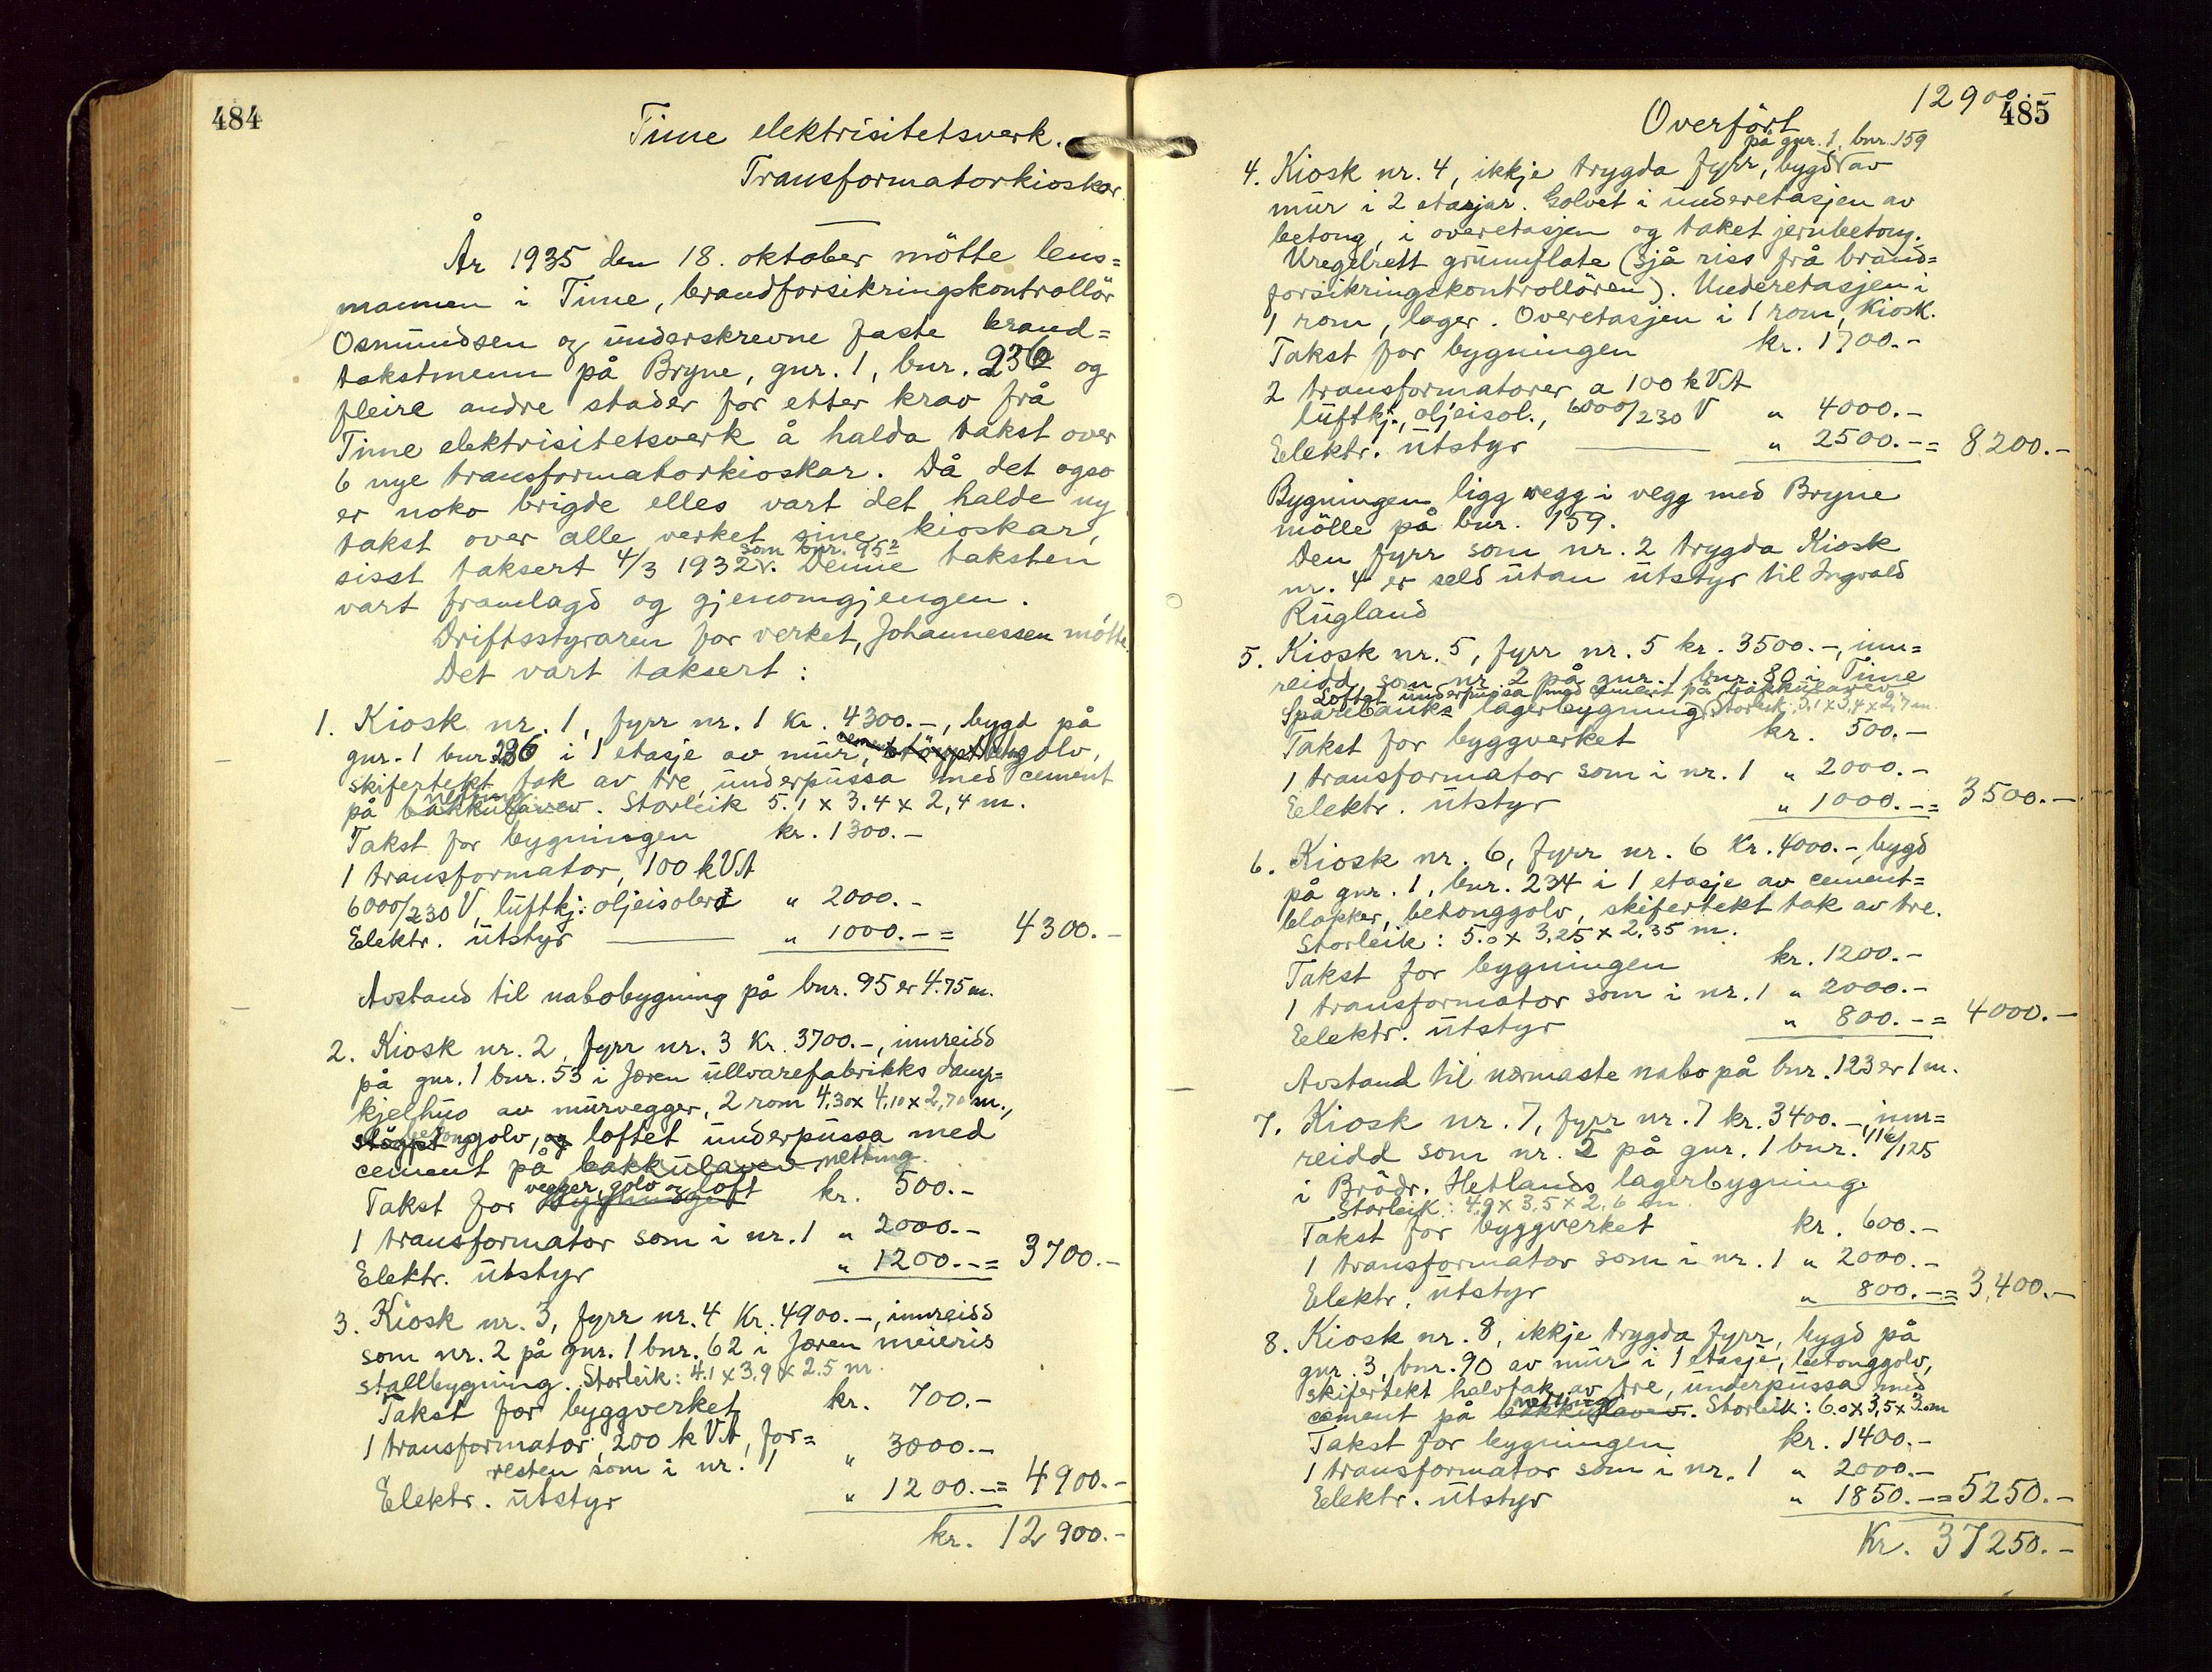 484
Time elektrisitetsverk.
Transformatorkioskar.
År 1935 den 18. oktober mötte lens=
mannen i Time, brandforsikringskontrollör
Osmundsen og underskrevne faste brand=
takstmenn på Bryne, gnr. 1, bnr. 236 og
fleire andre stader for etter krav frå
Time elektrisitetsverk å halda takst over
6 nye transformatorkioskar. Då det ogso
er noko brigde elles vart det halde ny
takst over alle verket sine kioskar,
som bnr. 95²
sisst taksert 4/3 1932 v. Denne taksten
vart framlagd og gjenomgjengen.
Driftsstyraren for verket, Johannessen mötte.
Det vart taksert:
1. Kiosk nr. 1, fyrr nr. 1 Kr. 4300.-, bygd på
gnr. 1 bnr. 236 i 1 etasje av mur, golv,
skifertekt tak av tre, underpussa med cement
netting
på bakkulavev. Storleik 5.1 x 3.4 x 2,4 m.
Takst for bygningen kr. 1300.-
1 transformator, 100 kVA
6000/230 V, luftkj. oljeisolert " 2000.-
Elektr. utstyr " 1000.- = 4300.-
Avstand til nabobygning på bnr. 95 er 4.75 m.
2. Kiosk nr. 2, fyrr nr. 3 Kr. 3700.-, innreidd
på gnr. 1 bnr. 53 i Jæren ullvarefabrikks damp=
kjelhus av murvegger, 2 rom 4,30 x 4,10 x 2,70 m.,
betong
stöypt golv, og loftet underpussa med
cement på bakkulavev netting.
vegger, golv og loft
Takst for kr. 500.-
1 transformator som i nr. 1 " 2000.-
Elektr. utstyr " 1200.- = 3700.-
3. Kiosk nr. 3, fyrr nr. 4 Kr. 4900.-, innreidd
som nr. 2 på gnr. 1 bnr. 62 i Jæren meieris
stallbygning. Storleik: 4.1 x 3.9 x 2.5 m.
Takst for byggverket kr. 700.-
1 transformator, 200 kVA, for=
resten som i nr. 1 " 3000.-
Elektr. utstyr " 1200.- = 4900.-
kr. 12900.-
485
Overfört 12900.-
på gnr. 1, bnr. 159
4. Kiosk nr. 4, ikkje trygda fyrr, bygd av
mur i 2 etasjar. Golvet i underetasjen av
betong, i overetasjen og taket jernbetong.
Uregelrett grunnflate (sjå riss frå brand=
forsikringskontrollören). Underetasjen i
1 rom, lager. Overetasjen i 1 rom, Kiosk.
Takst for bygningen kr. 1700.-
2 transformatorer a 100 kVA
luftkj., oljeisol., 6000/230 V " 4000.-
Elektr. utstyr " 2500.- = 8200.-
Bygningen ligg vegg i vegg med Bryne
mölle på bnr. 159.
Den fyrr som nr. 2 trygda Kiosk
nr. 4 er seld utan utstyr til Ingvald
Rugland
5. Kiosk nr. 5, fyrr nr. 5 kr. 3500.-, inn=
reidd som nr. 2 på gnr. 1 bnr. 80 i Time
Loftet underpussa med cement på bakkulavev.
Sparebanks lagerbygning. Storleik: 3,1 x 3,4 x 2,7 m.
Takst for byggverket kr. 500.-
1 transformator som i nr. 1 " 2000.-
Elektr. utstyr " 1000.- = 3500.-
6. Kiosk nr. 6, fyrr nr. 6 Kr. 4000.-, bygd
på gnr. 1, bnr. 234 i 1 etasje av cement=
blokker, betonggolv, skifertekt tak av tre.
Storleik: 5.0 x 3,25 x 2.35 m.
Takst for bygningen kr. 1200.-
1 transformator som i nr. 1 " 2000.-
Elektr. utstyr " 800.- = 4000.-
Avstand til nærmaste nabo på bnr. 123 er 1 m.
7. Kiosk nr. 7, fyrr nr. 7 kr. 3400.-, inn=
reidd som nr. 2 på gnr. 1 bnr. 116/125
i Brödr. Hetlands lagerbygning.
Storleik: 4.9 x 3,5 x 2,6 m
Takst for byggverket kr. 600.-
1 transformator som i nr. 1 " 2000.-
Elektr. utstyr " 800.- = 3,400.-
8. Kiosk nr. 8, ikkje trygda fyrr, bygd på
gnr. 3, bnr. 90 av mur i 1 etasje, betonggolv,
skifertekt halvtak av tre, underpussa med
netting
cement på bakkulavev. Storleik: 6.0 x 3,5 x 3.0 m
Takst for bygningen kr. 1400.-
1 transformator som i nr. 1 " 2000.-
Elektr. utstyr " 1850.- = 5250.-
Kr. 37250.-